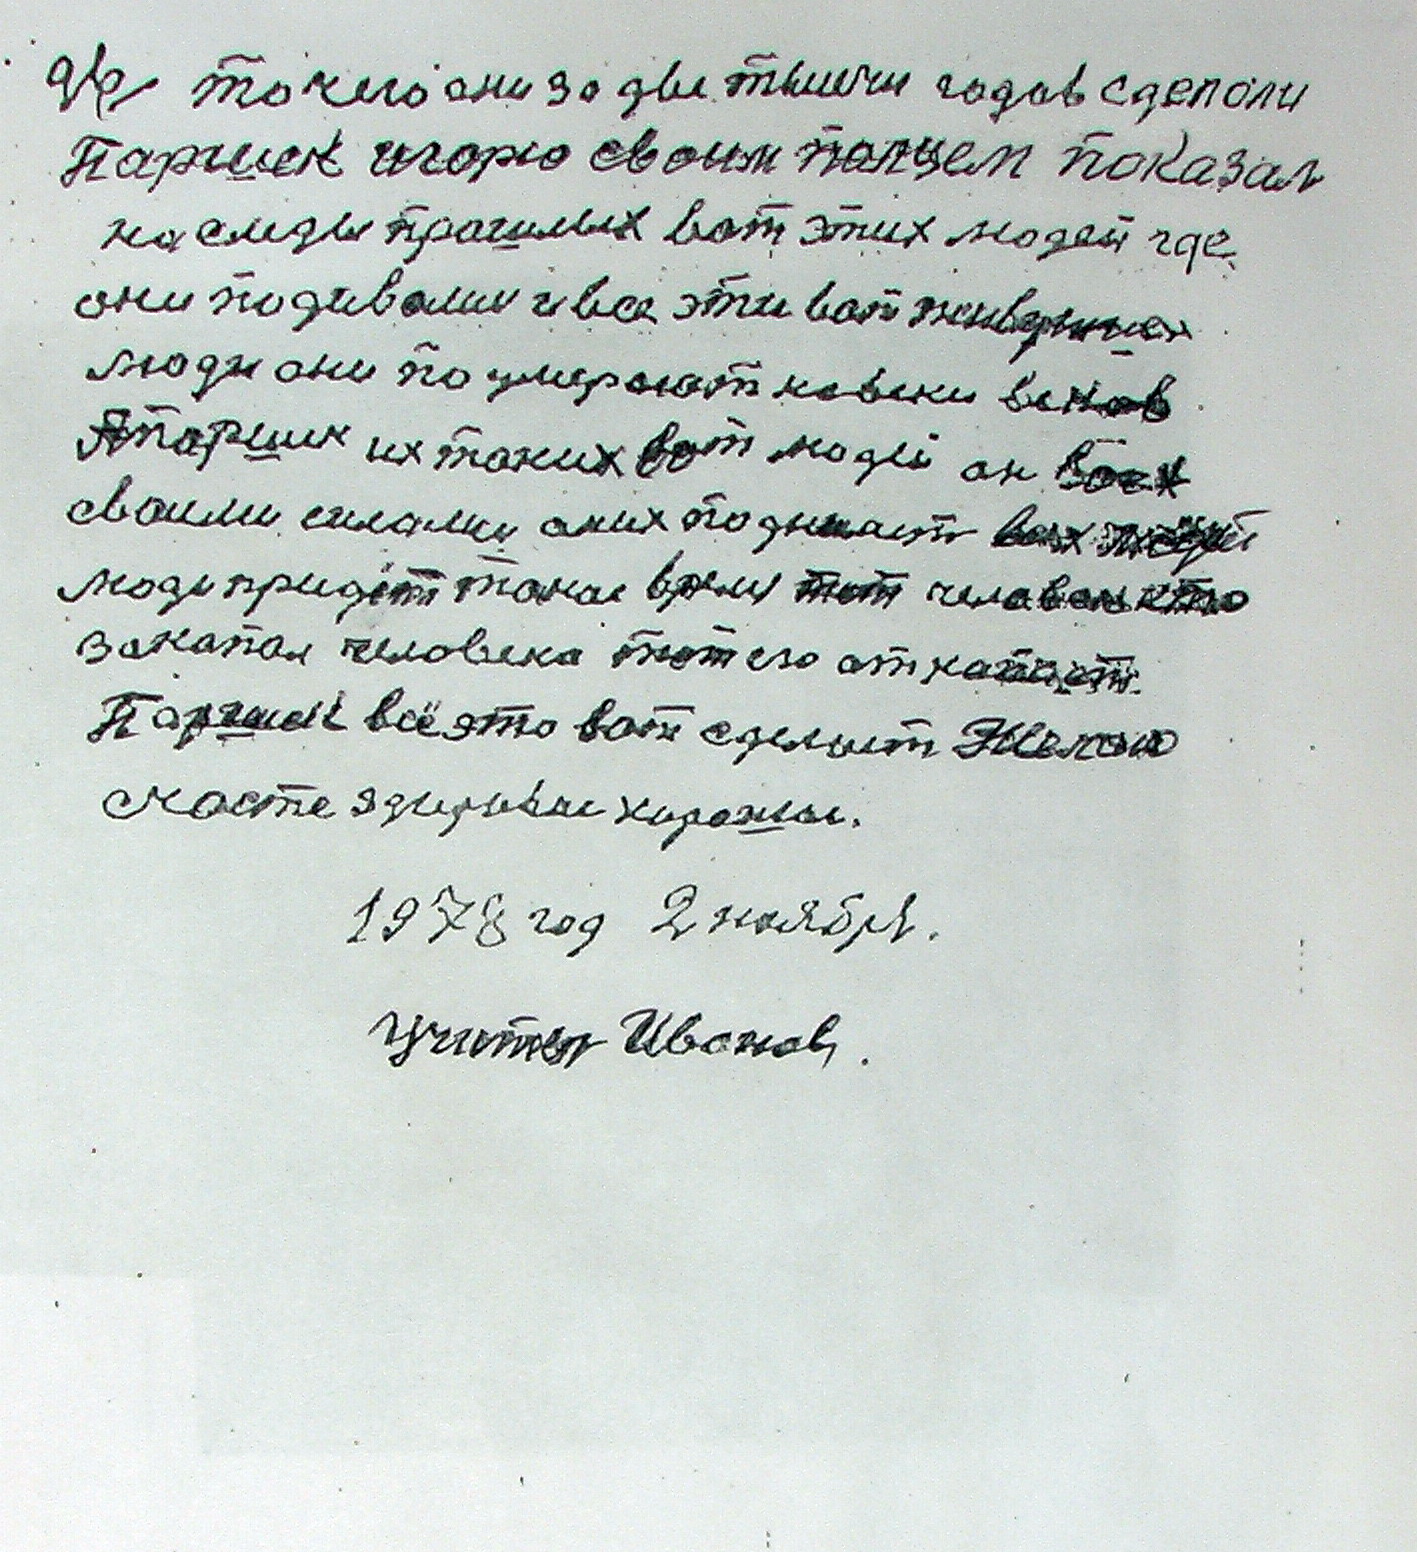 такого они за две тысечи годов сделоли
Паршек игорю своим палцем показал
на следы прошлых вот этих людей где
они подивались и все эти вот живущих
люди они поумерают навеки веков
А паршик их таких вот людей он всех
своими силами он их поднимаит всех
люди придёт такое время тот человек кто
закапал человека тот его откапаит.
Паршек всё это вот сделаит Желаю
счасте здоровье хорошье.
1978 год 2 ноября.
Учител Иванов.